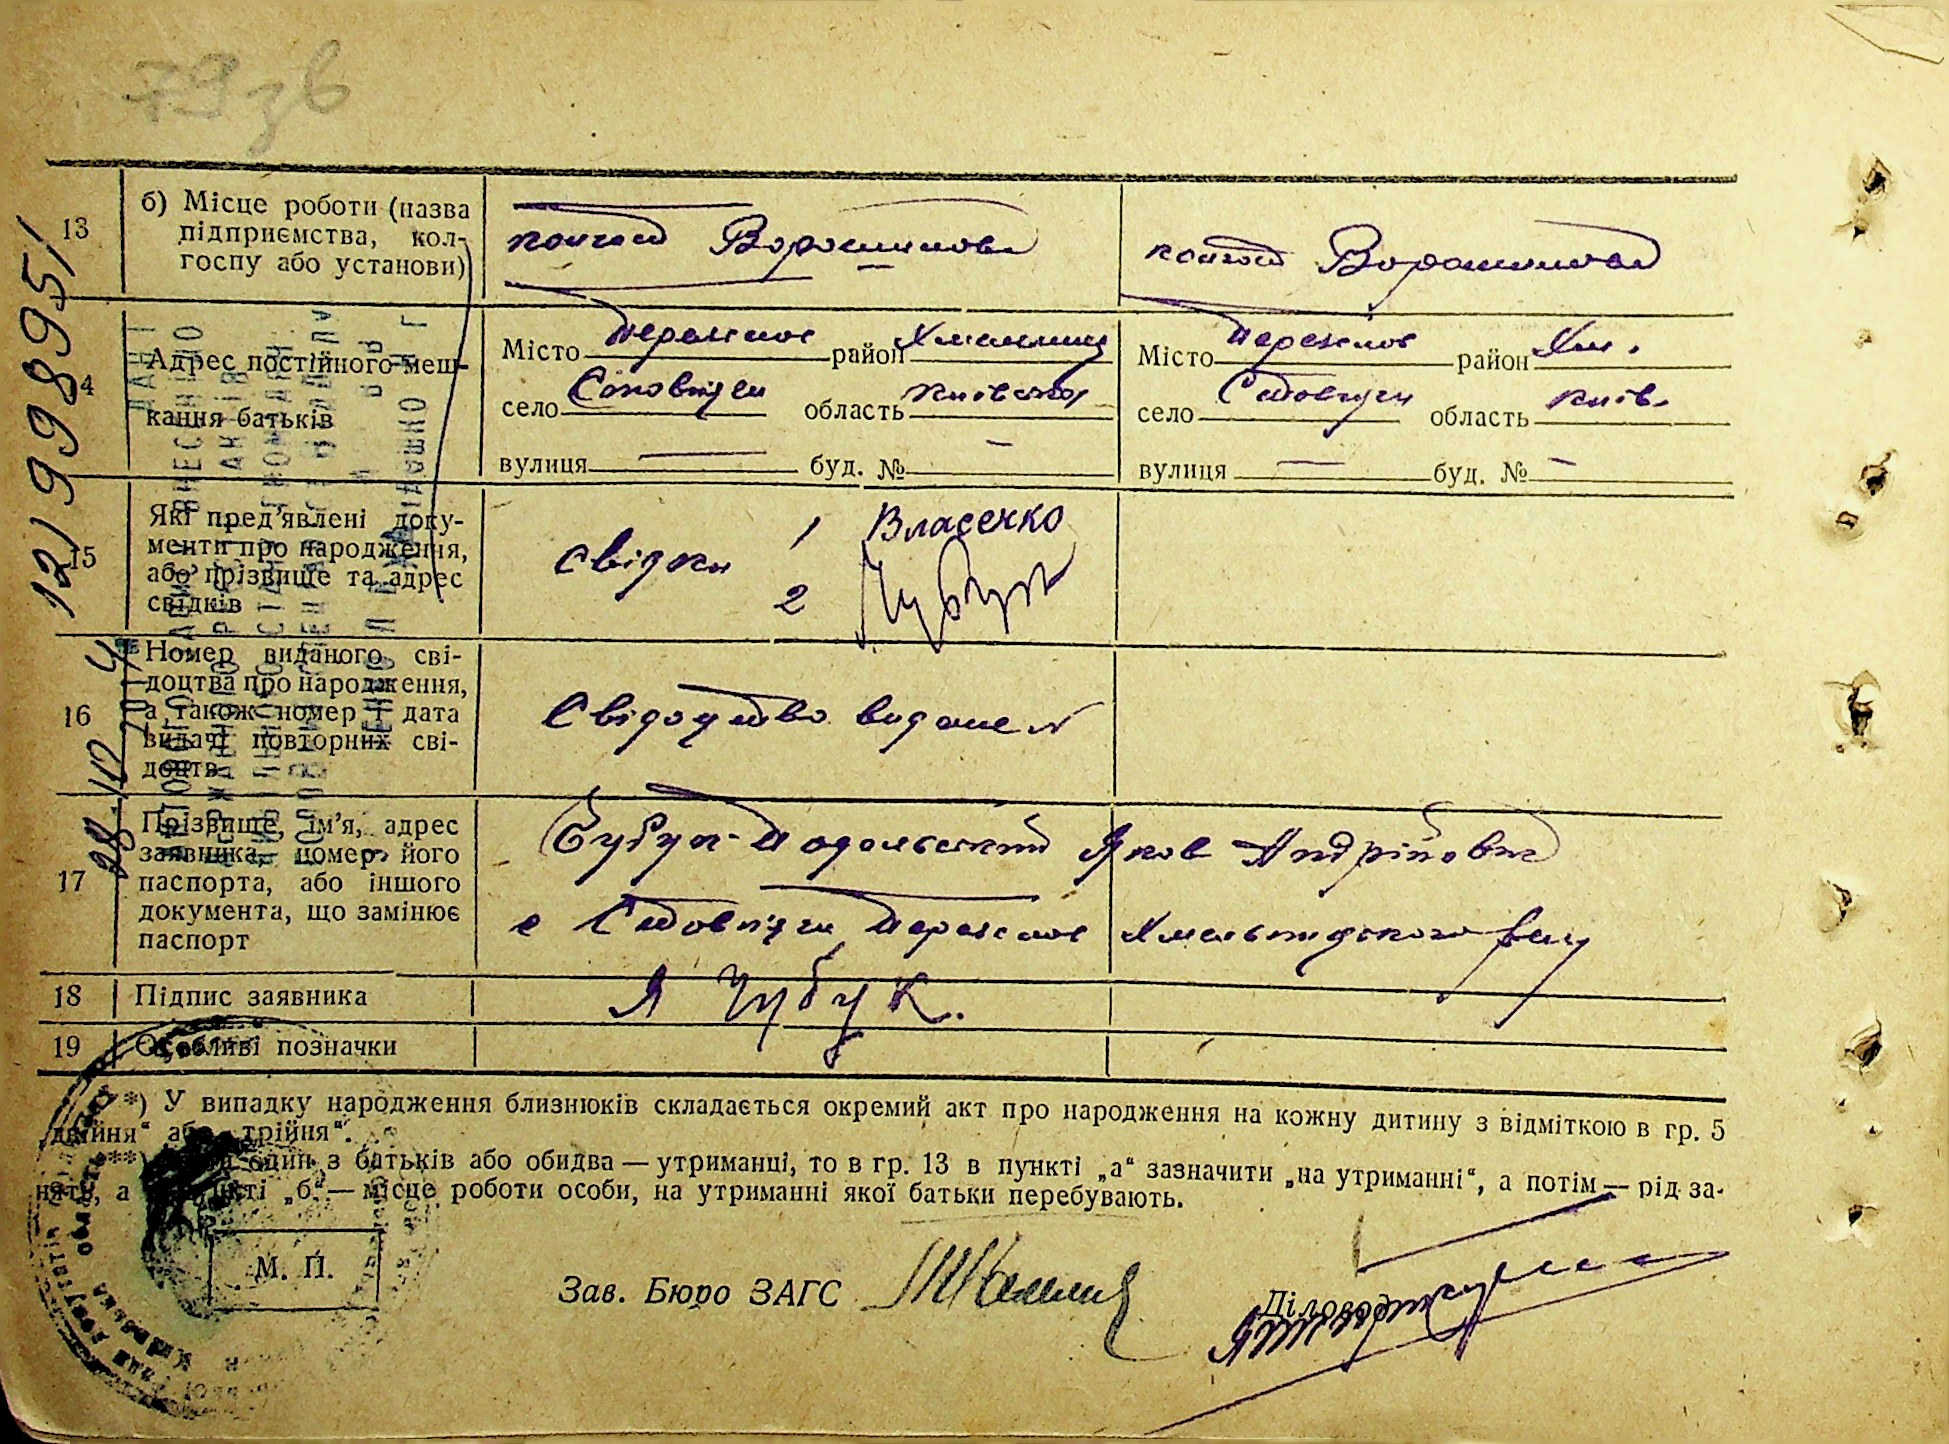 79 зв
13 б) Місце роботи (назва
підприємства, кол-
госпу або установи)
колгосп Ворошилова
колгосп Ворошилова
Адрес постійного меш-
кання батьків
Місто район
село область Київська
вулиця — буд. № —
Місто район Хм.
село область Київ.
вулиця — буд. № —
15 Які пред’явлені доку-
менти про народження,
або прізвище та адрес
свідків
свідки 1 Власенко
2 Чубук
16 Номер виданого сві-
доцтва про народження,
а також номер і дата
видачі повторних сві-
доцтв
Свідоцтво видане №
17 Прізвище, ім’я, адрес
заявника, номер його
паспорта, або іншого
документа, що замінює
паспорт
Чубук-Подольський Яков Андрійович
с Хмельницького
18 Підпис заявника
Я Чубук.
19 Особливі позначки
*) У випадку народження близнюків складається окремий акт про народження на кожну дитину з відміткою в гр. 5
„двійня“ або „трійня“.
**) один з батьків або обидва — утриманці, то в гр. 13 в пункті „а“ зазначити „на утриманні“, а потім — рід за-
няття, а пункті „б“ — місце роботи особи, на утриманні якої батьки перебувають.
М. П.
Зав. Бюро ЗАГС
Діловод
12199895/